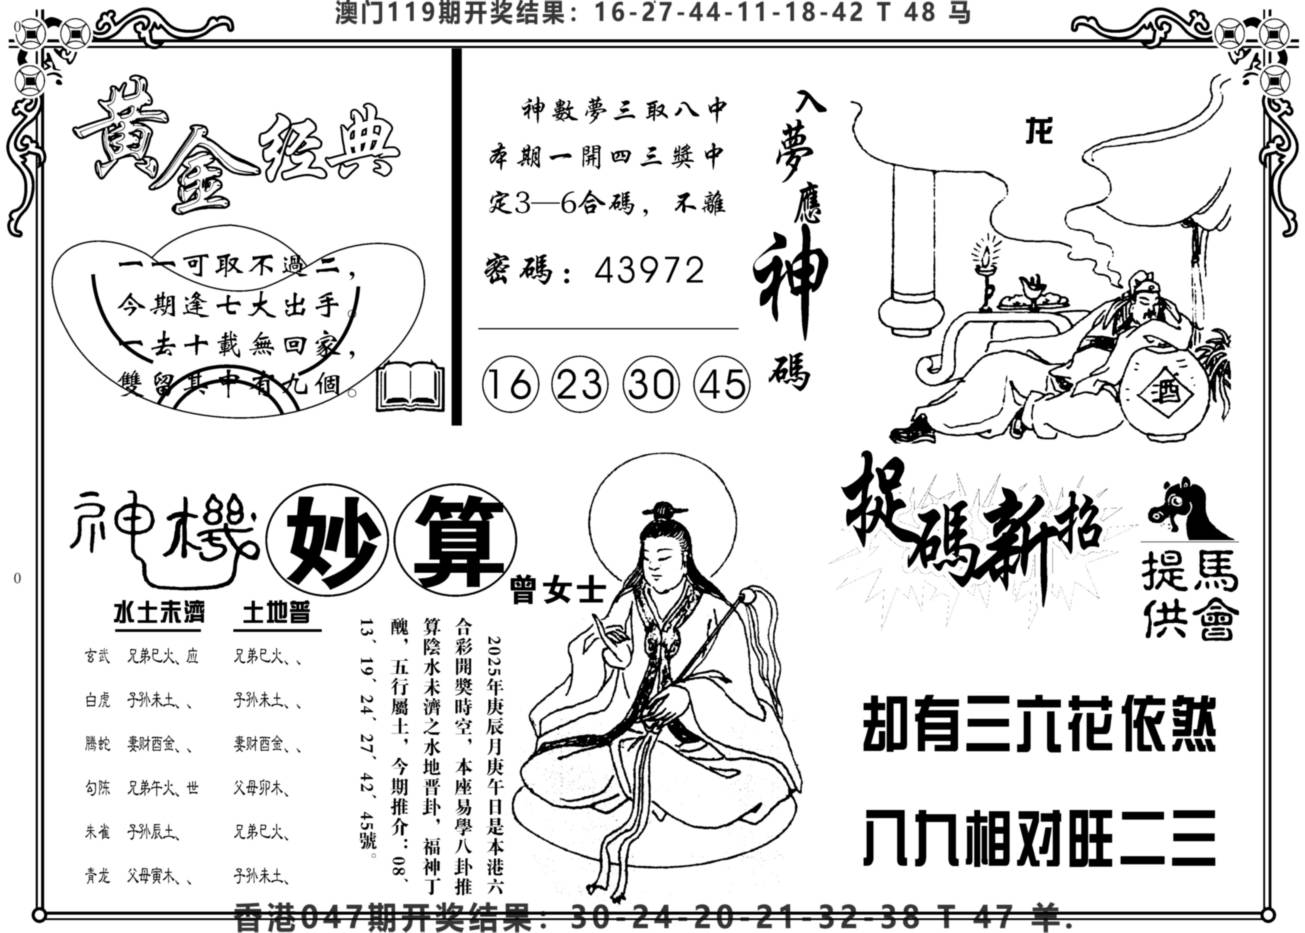 澳门119期开奖结果：16-27-44-11-18-42 T 48 马
黃金經典
一一可取不過二，
今期逢七大出手。
一去十載無回家，
雙留其中有九個。
神數夢三取八中
本期一開四三獎中
定3—6合碼，不離
密碼：43972
16 23 30 45
入夢應神碼
龙
酒
神機妙算
曾女士
水土未濟 土地普
玄武 兄弟巳火、应 兄弟巳火、、
白虎 子孙未土、、 子孙未土、、
腾蛇 妻财酉金、、 妻财酉金、、
勾陈 兄弟午火、世 父母卯木、
朱雀 子孙辰土、 兄弟巳火、
青龙 父母寅木、、 子孙未土、
2025年庚辰月庚午日是本港六
合彩開獎時空，本座易學八卦推
算陰水未濟之水地晋卦，福神丁
醜，五行屬土，今期推介：08、
13、19、24、27、42、45號。
捉碼新招
馬會
提供
却有三六花依然
八九相对旺二三
香港047期开奖结果：30-24-20-21-32-38 T 47 羊.
0
0